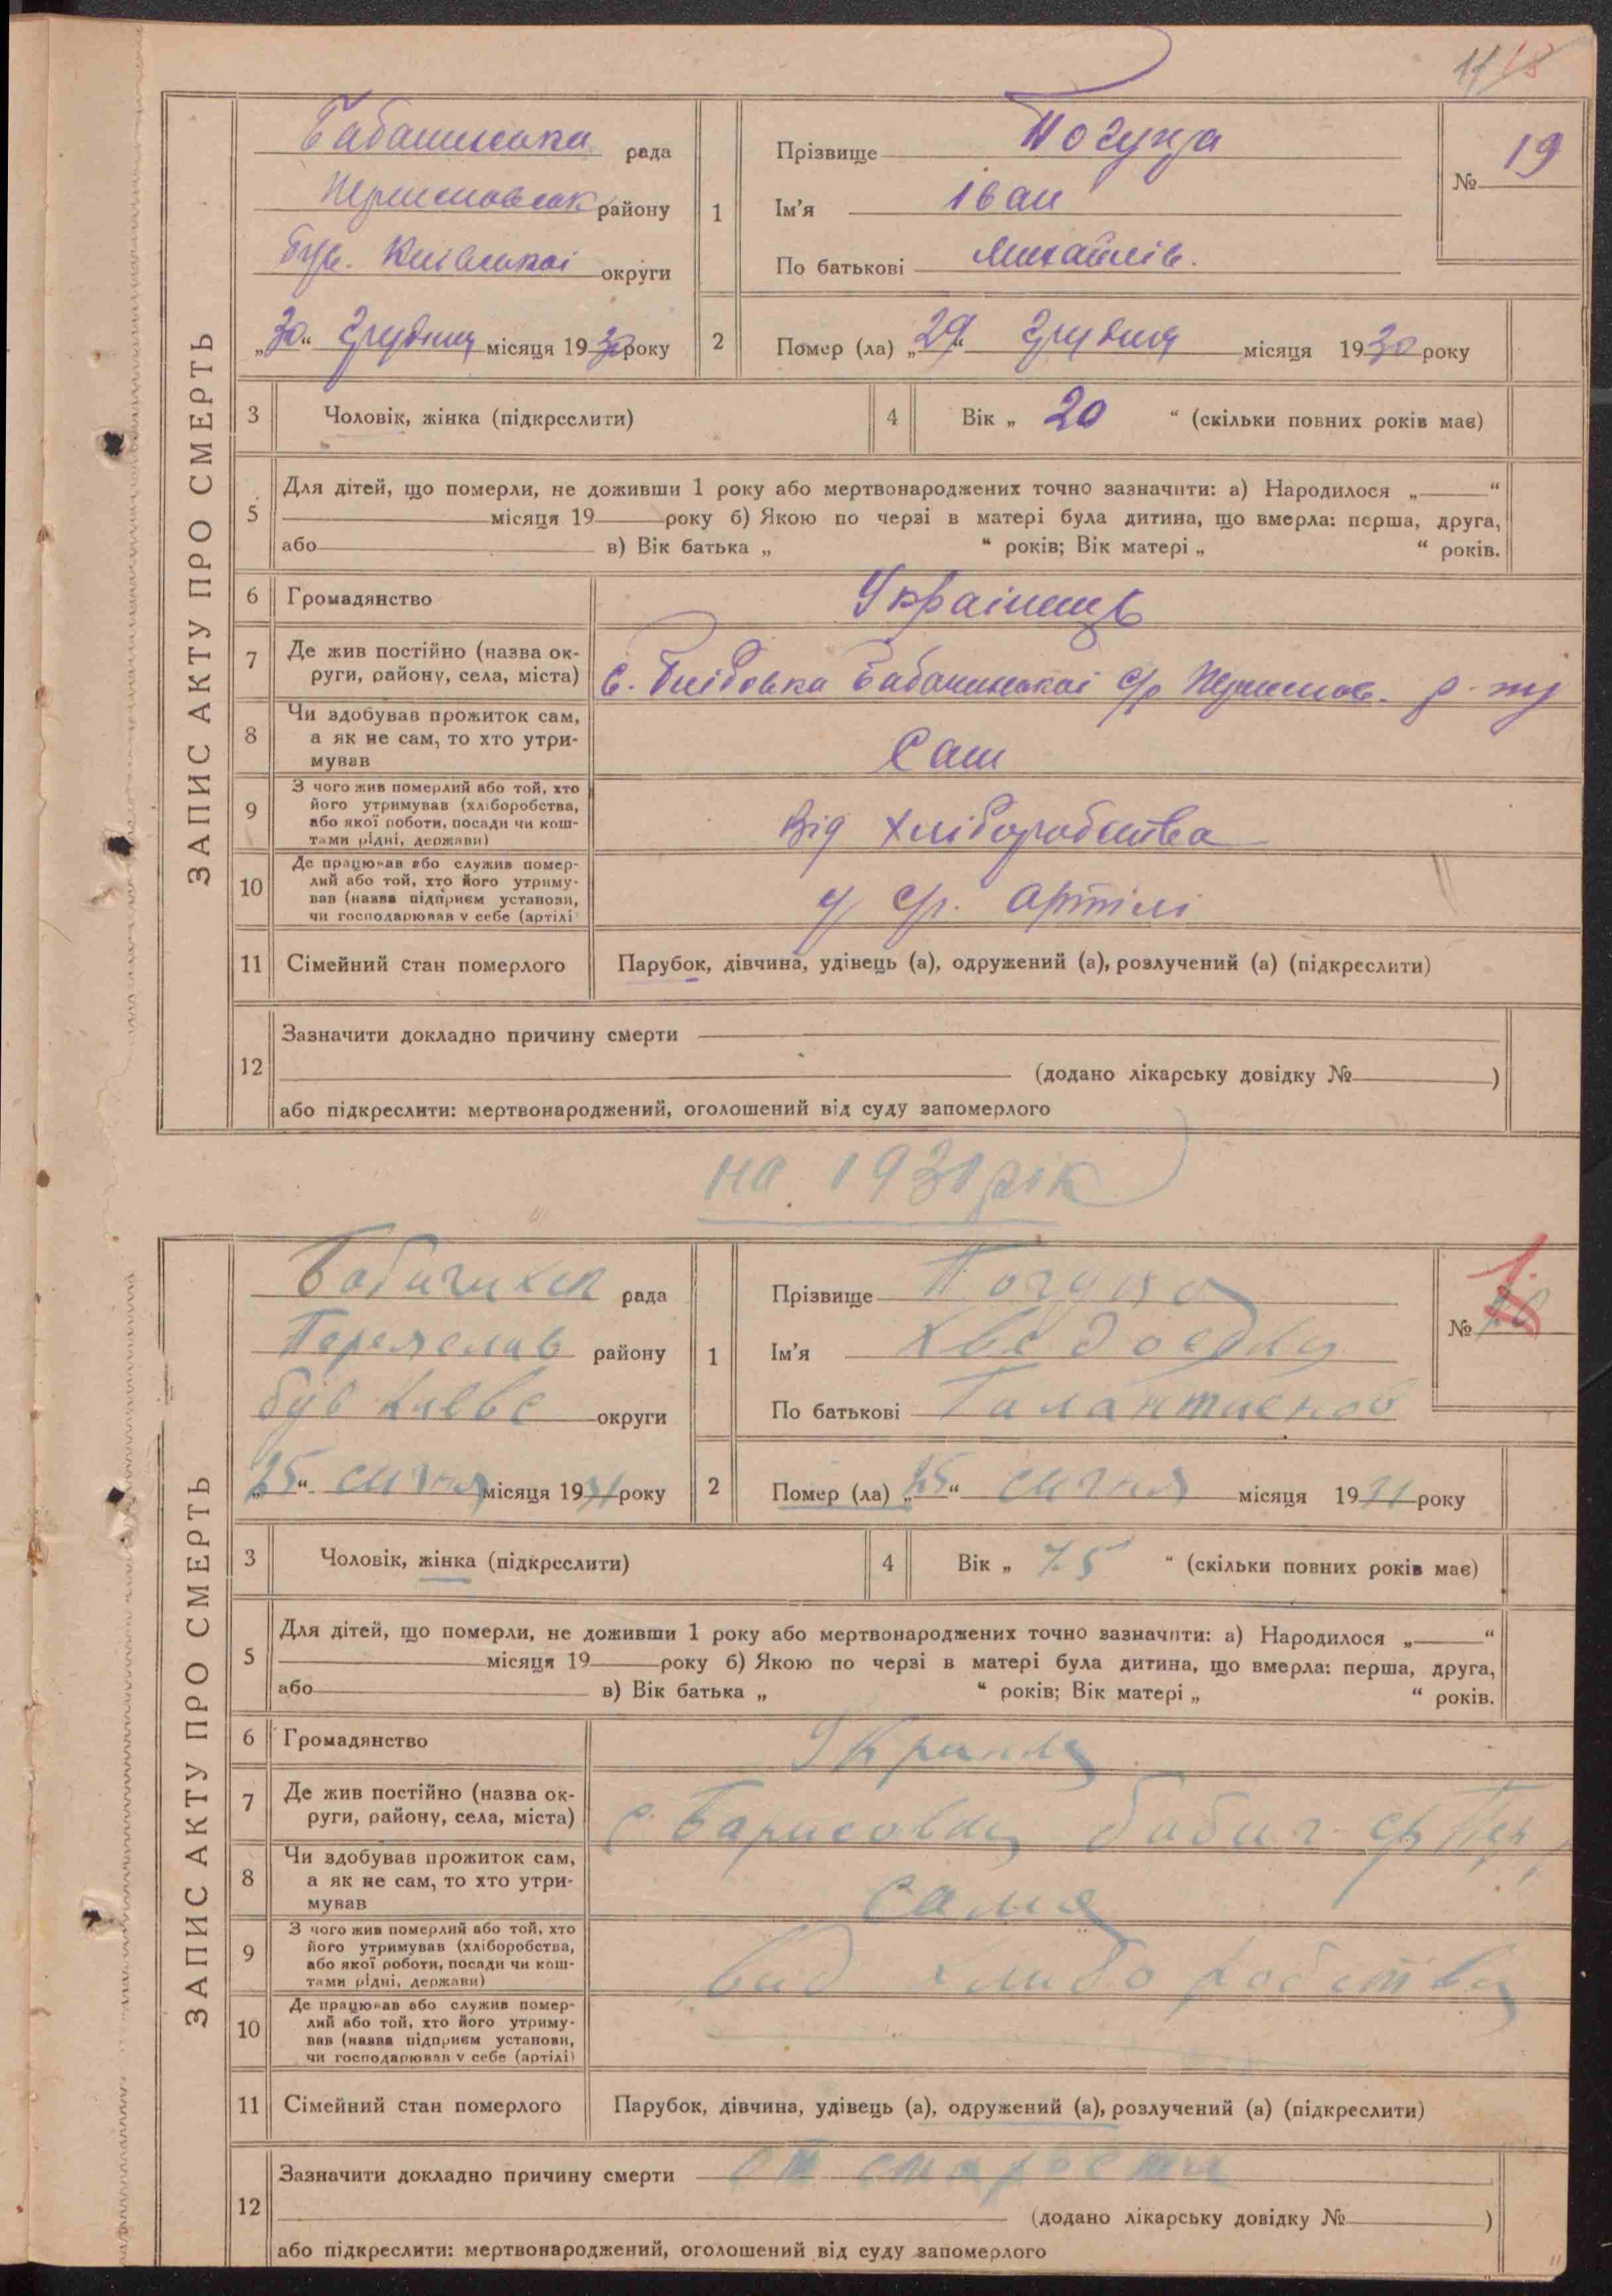 11 18
ЗАПИС АКТУ ПРО СМЕРТЬ
рада
району
Був. Київської округи
„30“ Грудня місяця 1930 року
1
Прізвище
Ім'я Іван
По батькові Михайлів.
№ 19
2 Помер (ла) „29“ Грудня місяця 1930 року
3 Чоловік, жінка (підкреслити)
4 Вік „ 20 “ (скільки повних років має)
5 Для дітей, що померли, не доживши 1 року або мертвонароджених точно зазначити: а) Народилося „ “
місяця 19 року б) Якою по черзі в матері була дитина, що вмерла: перша, друга,
або в) Вік батька „ “ років; Вік матері „ “ років.
6 Громадянство Українець
7 Де жив постійно (назва ок-
руги, району, села, міста) с.
8 Чи здобував прожиток сам,
а як не сам, то хто утри-
мував Сам
9 З чого жив померлий або той, хто
його утримував (хліборобства,
або якої роботи, посади чи кош-
тами рідні, держави) Від хліборобства
10 Де працював або служив помер-
лий або той, хто його утриму-
вав (назва підприєм установи,
чи господарював у себе (артілі) у с/г. артілі
11 Сімейний стан померлого Парубок, дівчина, удівець (а), одружений (а), розлучений (а) (підкреслити)
12 Зазначити докладно причину смерти
(додано лікарську довідку № )
або підкреслити: мертвонароджений, оголошений від суду запомерлого
на 1931 рік
ЗАПИС АКТУ ПРО СМЕРТЬ
рада
Переяслав району
був округи
„25“ сичня місяця 1931 року
1
Прізвище
Ім'я
По батькові
№ 1.
2 Помер (ла) „25“ сичня місяця 1931 року
3 Чоловік, жінка (підкреслити)
4 Вік „ 75 “ (скільки повних років має)
5 Для дітей, що померли, не доживши 1 року або мертвонароджених точно зазначити: а) Народилося „ “
місяця 19 року б) Якою по черзі в матері була дитина, що вмерла: перша, друга,
або в) Вік батька „ “ років; Вік матері „ “ років.
6 Громадянство
7 Де жив постійно (назва ок-
руги, району, села, міста) с.
8 Чи здобував прожиток сам,
а як не сам, то хто утри-
мував сама
9 З чого жив померлий або той, хто
його утримував (хліборобства,
або якої роботи, посади чи кош-
тами рідні, держави) вид хлиборобства
10 Де працював або служив помер-
лий або той, хто його утриму-
вав (назва підприєм установи,
чи господарював у себе (артілі)
11 Сімейний стан померлого Парубок, дівчина, удівець (а), одружений (а), розлучений (а) (підкреслити)
12 Зазначити докладно причину смерти от старости
(додано лікарську довідку № )
або підкреслити: мертвонароджений, оголошений від суду запомерлого